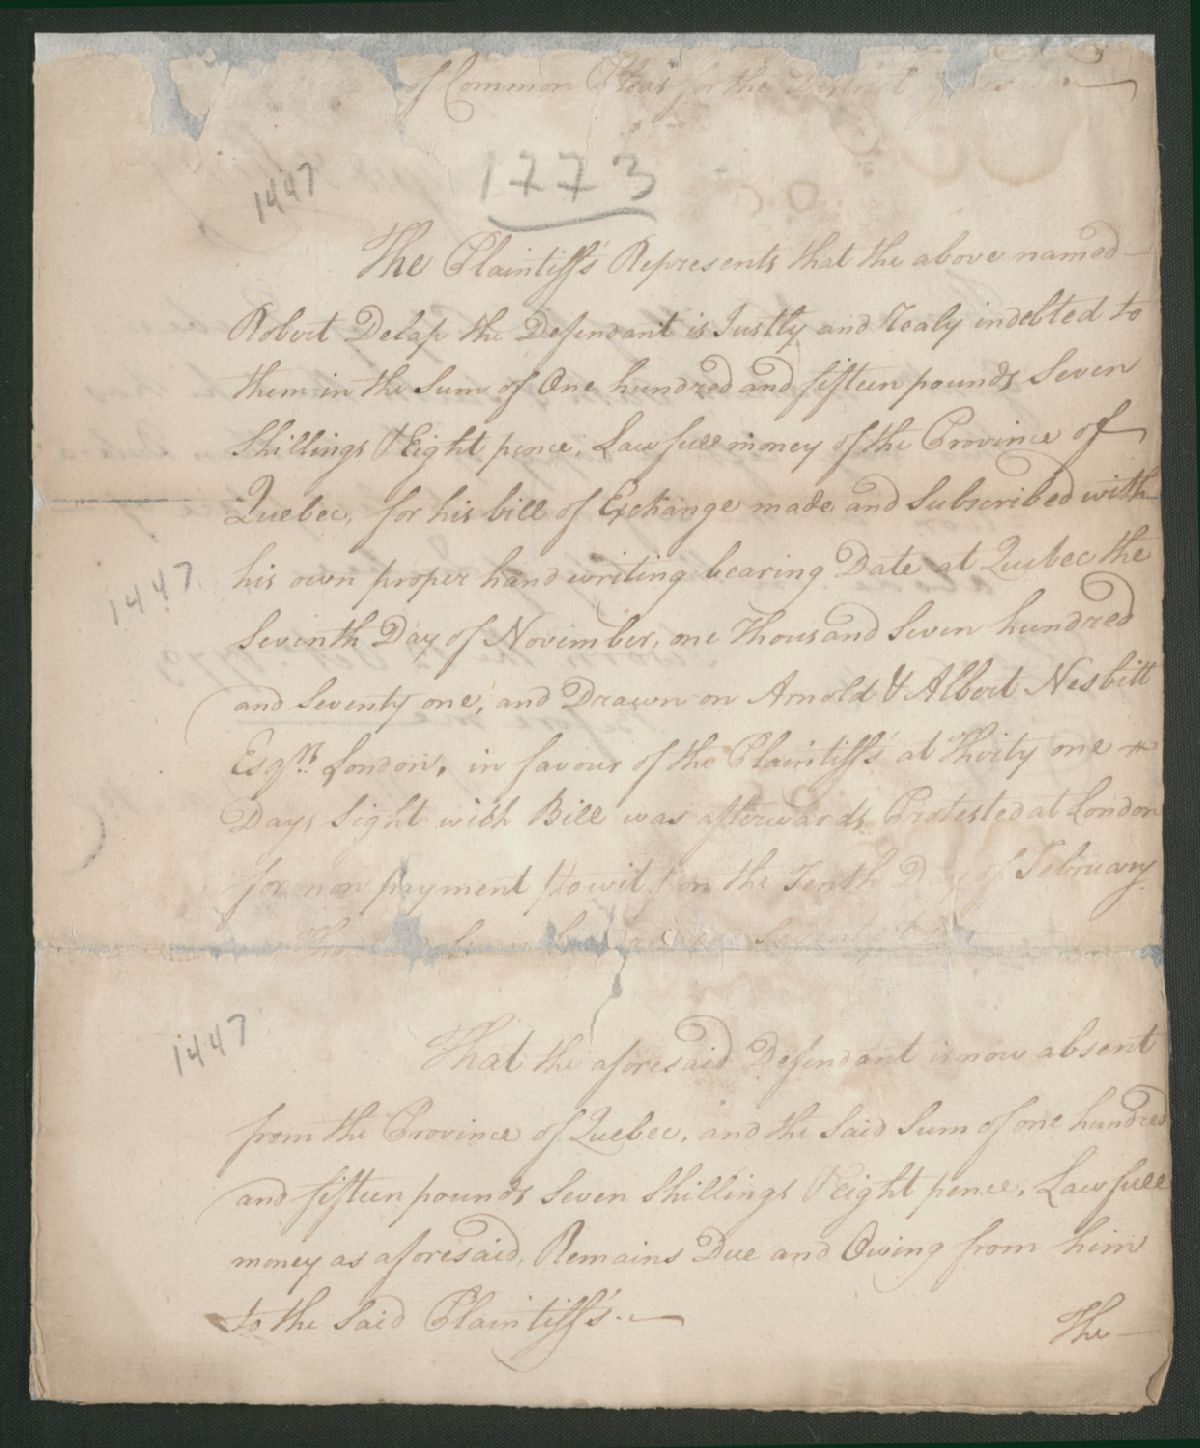 of Common Pleas for the District
1773
1447
The Plaintiff's Represents that the above named
Robert Delap the Defendant is Justly and Realy indebted to
them in the Sum of One hundred and fifteen pounds Seven
Shillings & Eight pence, Lawfull money of the Province of
Quebec, for his bill of Exchange made and Subscribed with
his own proper hand writing bearing Date at Quebec the
1447
Seventh Day of November, one Thousand Seven hundred
and Seventy one, and Drawn on Arnold & Albert Nesbitt
Esqrs. London, in favour of the Plaintiff's at Thirty one
Days Sight with Bill was afterwards Protested at London
for non payment /to wit/ on the Tenth Day of February
1447
That the aforesaid Defendant is now absent
from the Province of Quebec, and the Said Sum of one hundred
and fifteen pounds Seven Shillings & Eight pence, Lawfull
money as aforesaid, Remains Due and Owing from him
to the Said Plaintiff's.
The